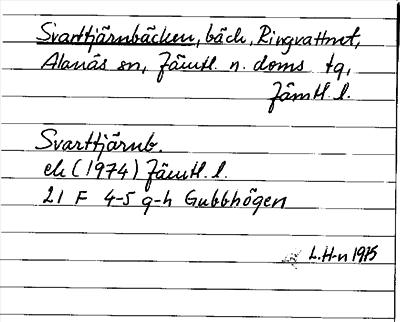 Svarttjärnbäcken, bäck, Ringvattnet,
Alanäs sn, Jämtl. n. doms tg,
Jämtl. l.
Svarttjärnb.
ek (1974) Jämtl. l.
21 F 4-5 g-h Gubbhögen
L.H-n 1975